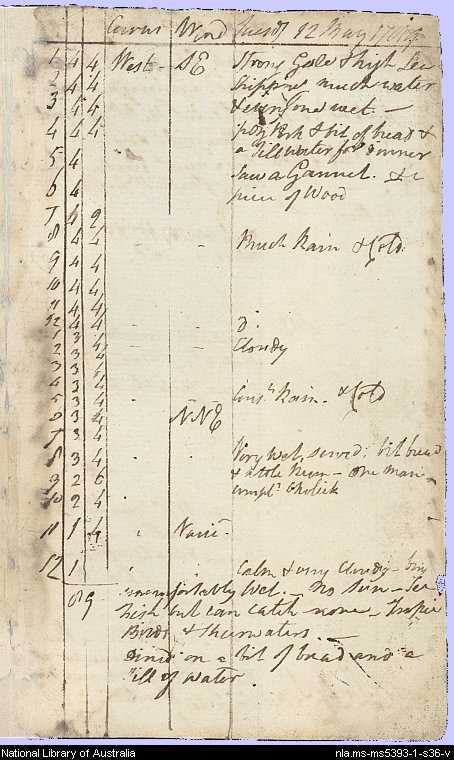 Courses Wind Tuesd 12 May 1789
1 4 4 West - SE Strong Gale & high Sea
2 4 4 Shipping much water
3 4 4 & every one wet. -
4 4 4 Pork & bit of bread &
5 4 a Gill water for Dinner
6 4 Saw a Gannet. & a
piece of Wood
7 4 2
8 4 4 - - Much Rain & Cold.
9 4 4
10 4 4
11 4 4
12 4 4 - - Do.
1 3 4
2 3 4 - - Cloudy
3 3 4
4 3 4
5 3 4 - Const. Rain. & Cold
6 3 4 NNE
7 3 4
8 3 4 - - Very wet, served: bit bread
9 2 6 & a tole Rum - one man
10 2 4 compl. Cholick
11 1 4 Varie.
12 1 Calm & very Cloudy - being
89 uncomfortably wet. - No Sun - See
fish but can catch none - Tropic
Birds & Shearwaters. -
Dined on a bit of bread and a
Gill of Water.
National Library of Australia nla.ms-ms5393-1-s36-v